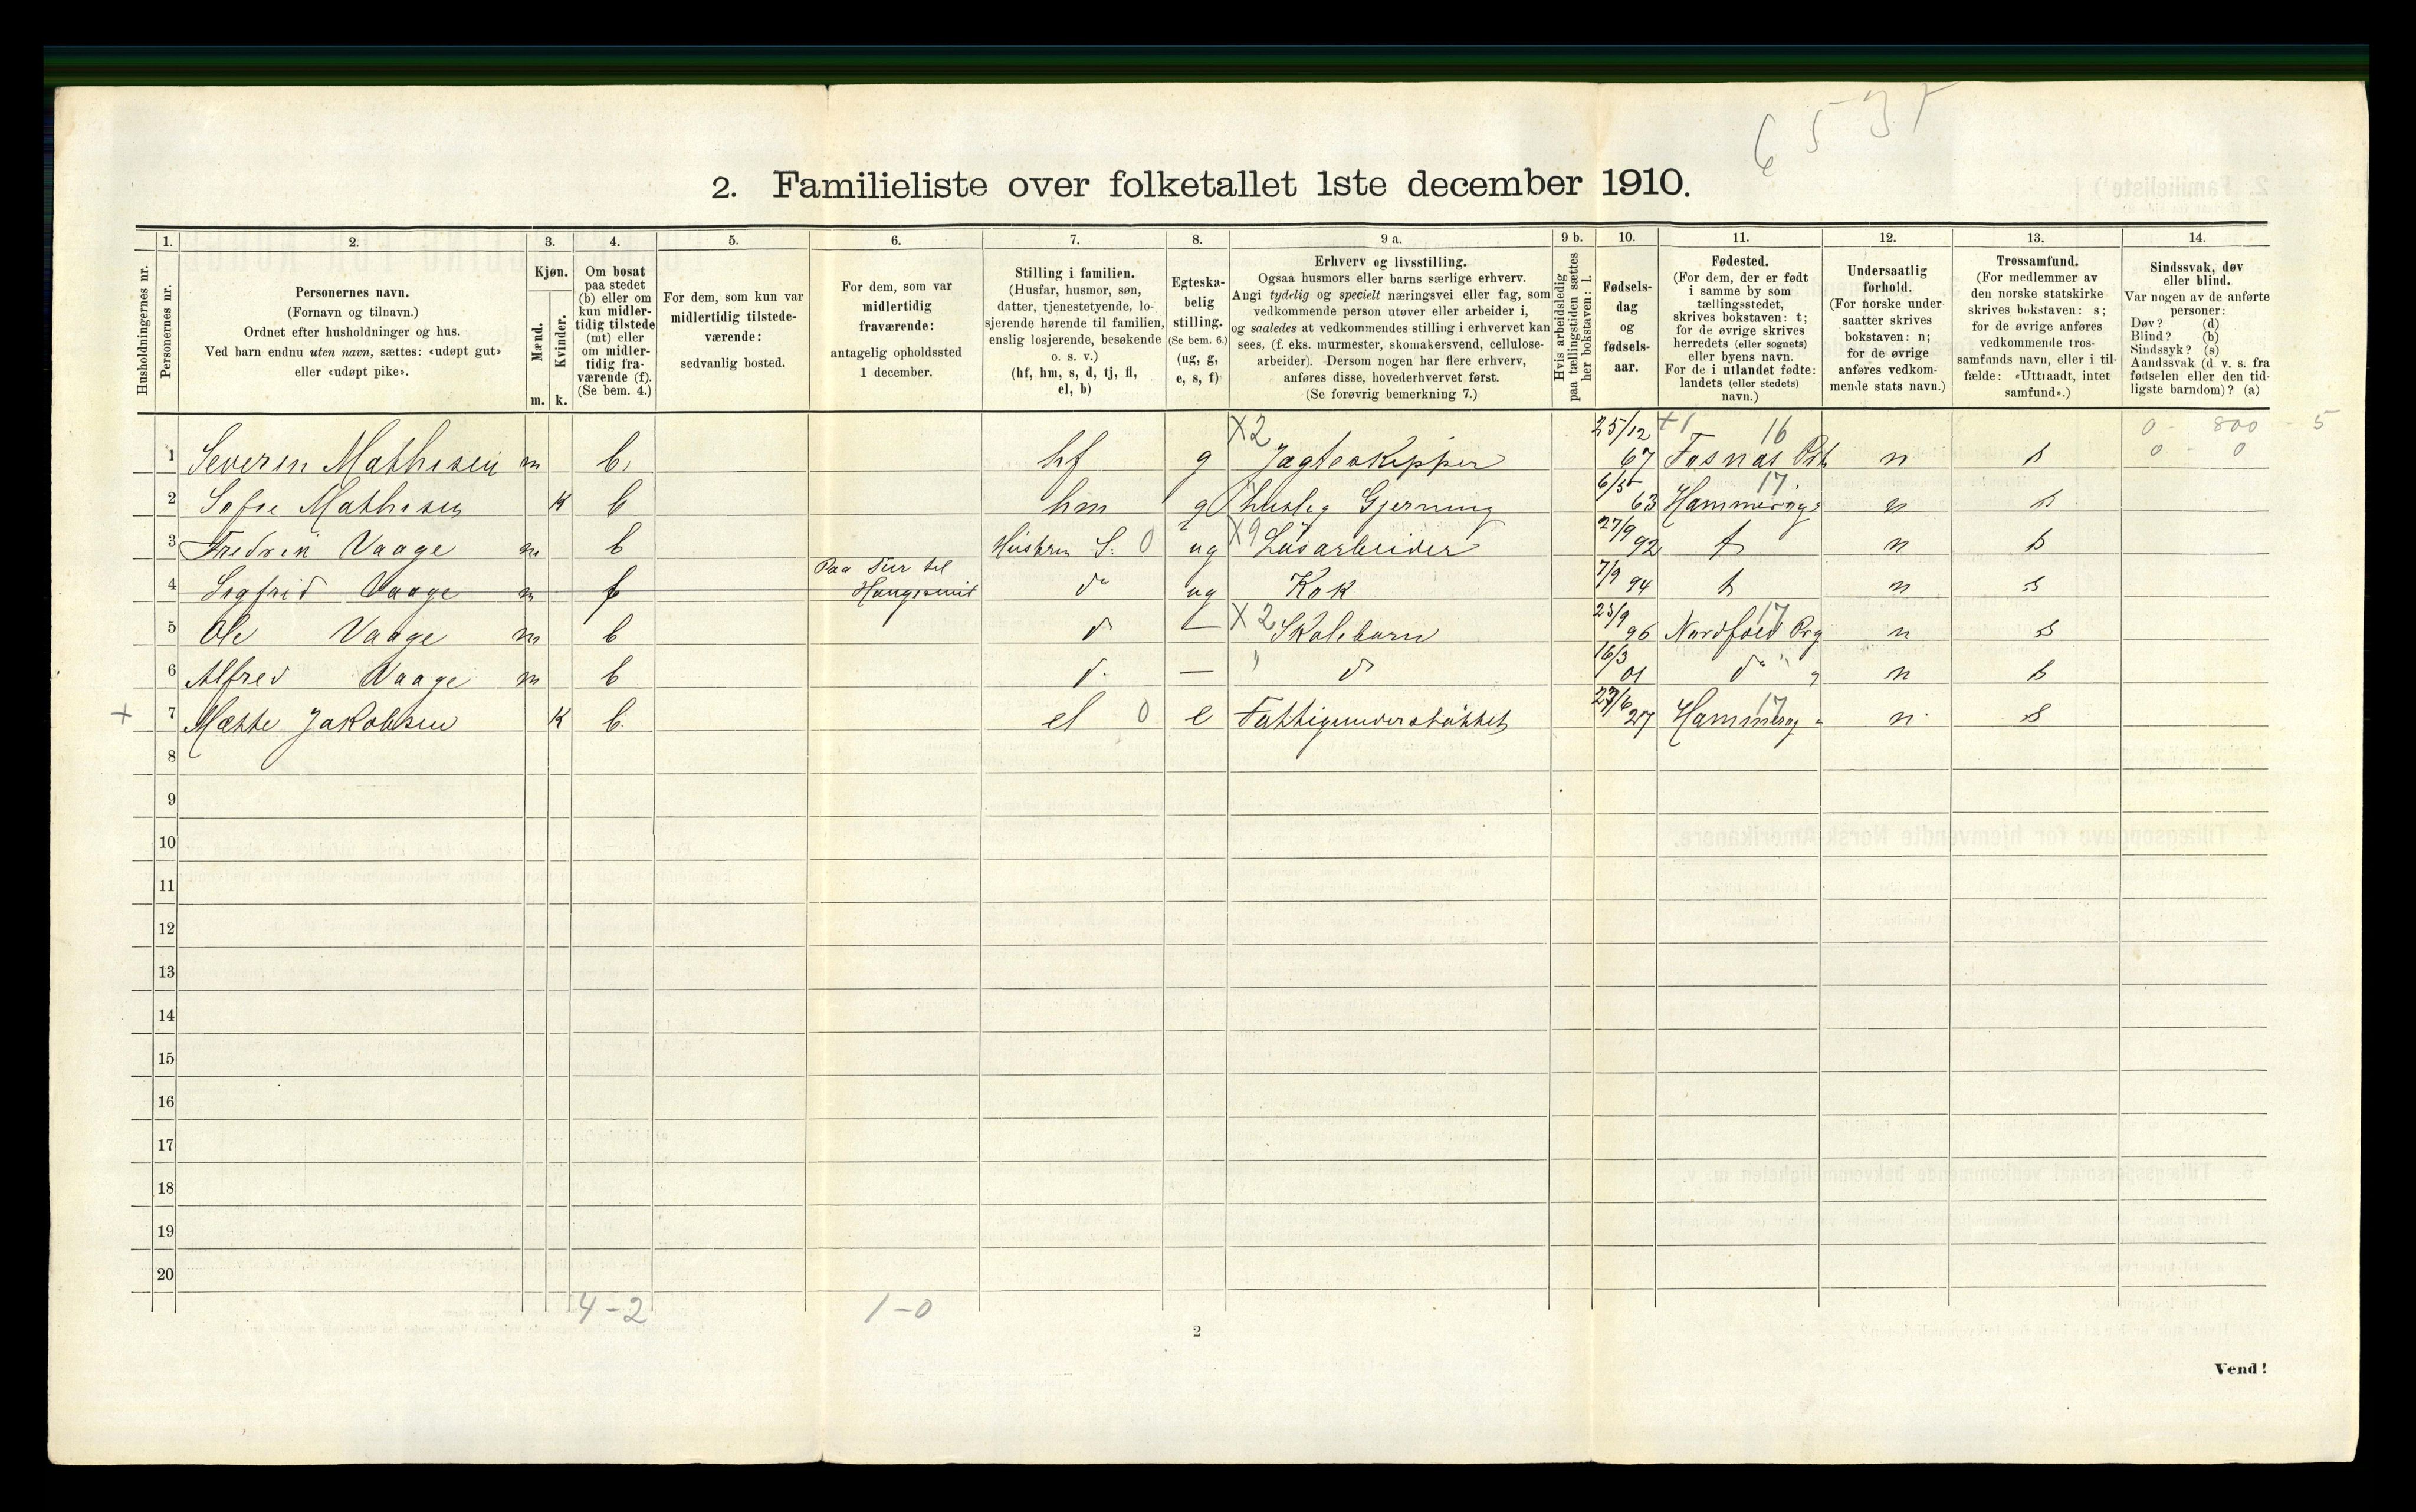 6 5 37
2. Familieliste over folketallet 1ste december 1910.
1. 2. 3. 4. 5. 6. 7. 8. 9 a. 9 b. 10. 11. 12. 13. 14.
Husholdningernes nr.
Personernes nr.
Personernes navn.
(Fornavn og tilnavn.)
Ordnet efter husholdninger og hus.
Ved barn endnu uten navn, sættes: «udøpt gut»
eller «udøpt pike».
Kjøn.
Mænd.
Kvinder.
m. k.
Om bosat
paa stedet
(b) eller om
kun midler-
tidig tilstede
(mt) eller
om midler-
tidig fra-
værende (f).
(Se bem. 4.)
For dem, som kun var
midlertidig tilstede-
værende:
sedvanlig bosted.
For dem, som var
midlertidig
fraværende:
antagelig opholdssted
1 december.
Stilling i familien.
(Husfar, husmor, søn,
datter, tjenestetyende, lo-
sjerende hørende til familien,
enslig losjerende, besøkende
o. s. v.)
(hf, hm, s, d, tj, fl,
el, b)
Egteska-
belig
stilling.
(Se bem. 6.)
(ug, g,
e, s, f)
Erhverv og livsstilling.
Ogsaa husmors eller barns særlige erhverv.
Angi tydelig og specielt næringsvei eller fag, som
vedkommende person utøver eller arbeider i,
og saaledes at vedkommendes stilling i erhvervet kan
sees, (f. eks. murmester, skomakersvend, cellulose-
arbeider). Dersom nogen har flere erhverv,
anføres disse, hovederhvervet først.
(Se forøvrig bemerkning 7.)
Hvis arbeidsledig
paa tællingstiden sættes
her bokstaven: l.
Fødsels-
dag
og
fødsels-
aar.
Fødested.
(For dem, der er født
i samme by som
tællingsstedet,
skrives bokstaven: t;
for de øvrige skrives
herredets (eller sognets)
eller byens navn.
For de i utlandet fødte:
landets (eller stedets)
navn.)
Undersaatlig
forhold.
(For norske under-
saatter skrives
bokstaven: n;
for de øvrige
anføres vedkom-
mende stats navn.)
Trossamfund.
(For medlemmer av
den norske statskirke
skrives bokstaven: s;
for de øvrige anføres
vedkommende tros-
samfunds navn, eller i til-
fælde: «Uttraadt, intet
samfund».)
Sindssvak, døv
eller blind.
Var nogen av de anførte
personer:
Døv? (d)
Blind? (b)
Sindssyk? (s)
Aandssvak (d. v. s. fra
fødselen eller den tid-
ligste barndom)? (a)
X2 25/12 +1 16 0 - 800 - 5
1 Severin Mathisen m b. hf g Jagteskipper 67 Fosnæs n s 0 - 0
6/5 17
2 Sofie Mathisen K b hm g huslig Gjerning 63 n s
27/9
3 Fredrik Vaage m b Hustru S. 0 ug X9 Løsarbeider 92 t n s
Paa Tur til 7/9
4 Sigfrid Vaage m f Haugesund do ug Kok 94 t n s
X2 23/9 17
5 Ole Vaage m b d — Skolebarn 96 Nordfold Prg n s
16/3
6 Alfred Vaage m b d. — " d 01 do " n s
27/6 17
+ 7 Mætte Jakobsen K b. el 0 e Fattigunderstøttet 27 n s
8
9
10
11
12
13
14
15
16
17
18
19
20
4-2 1-0
2
Vend!